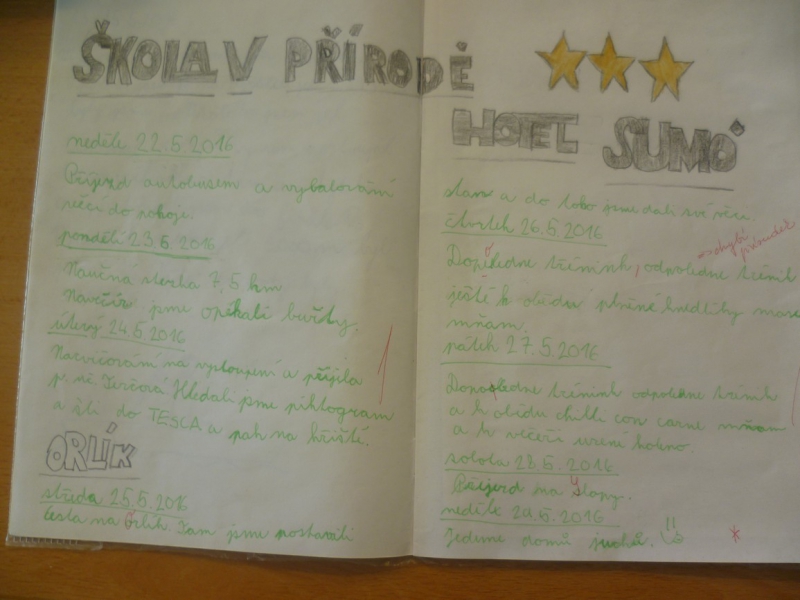 ŠKOLA V PŘÍRODĚ
neděle 22.5.2016
Příjezd autobusem a vybalování
věcí do pokoje.
pondělí 23.5.2016
Naučná stezka 7,5 km
Navečír jsme opékali buřty.
úterý 24.5.2016
Nacvičování na vystoupení a přijela
p. uč. Hledali jsme piktogram
a šli do TESCA a pak na hřiště.
ORLÍK
středa 25.5.2016
Cesta na Orlík. Tam jsme postavili
HOTEL SUMÓ
stan a do toho jsme dali své věci.
čtvrtek 26.5.2016
Dopoledne trénink, odpoledne trénik
ještě k obědu plněné knedlíky maso
mňam.
pátek 27.5.2016
Dopoledne trénink odpoledne trénik
a k obědu chilli con carne mňam
a k večeři uzené koleno.
sobota 28.5.2016
Příjezd na Slapy.
neděle 29.5.2016
Jedeme domů juchů.